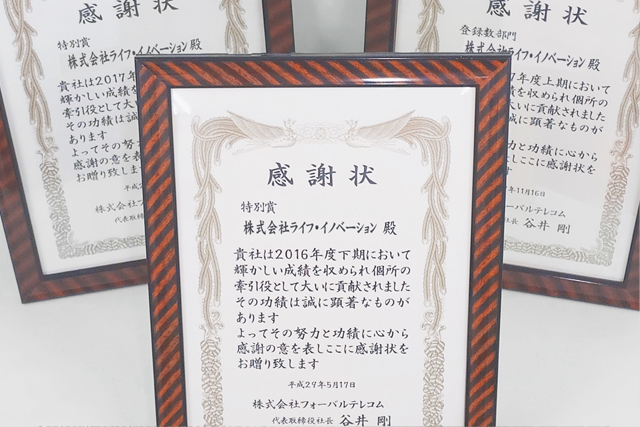 感謝状
特別賞
株式会社ライフ・イノベーション 殿
貴社は2017
輝かしい成績
牽引役として大
その功績は誠
あります
よってその努
感謝の意を表
お贈り致しま
平成
株式会
代表取締
感謝状
登録数部門
株式会社ライフ・イノベーション 殿
年度上期において
績を収められ個所の
大いに貢献されました
誠に顕著なものが
努力と功績に心から
表しここに感謝状を
す
年11月16日
フォーバルテレコム
社長 谷井 剛
感謝状
特別賞
株式会社ライフ・イノベーション 殿
貴社は2016年度下期において
輝かしい成績を収められ個所の
牽引役として大いに貢献されました
その功績は誠に顕著なものが
あります
よってその努力と功績に心から
感謝の意を表しここに感謝状を
お贈り致します
平成29年5月17日
株式会社フォーバルテレコム
代表取締役社長 谷井 剛